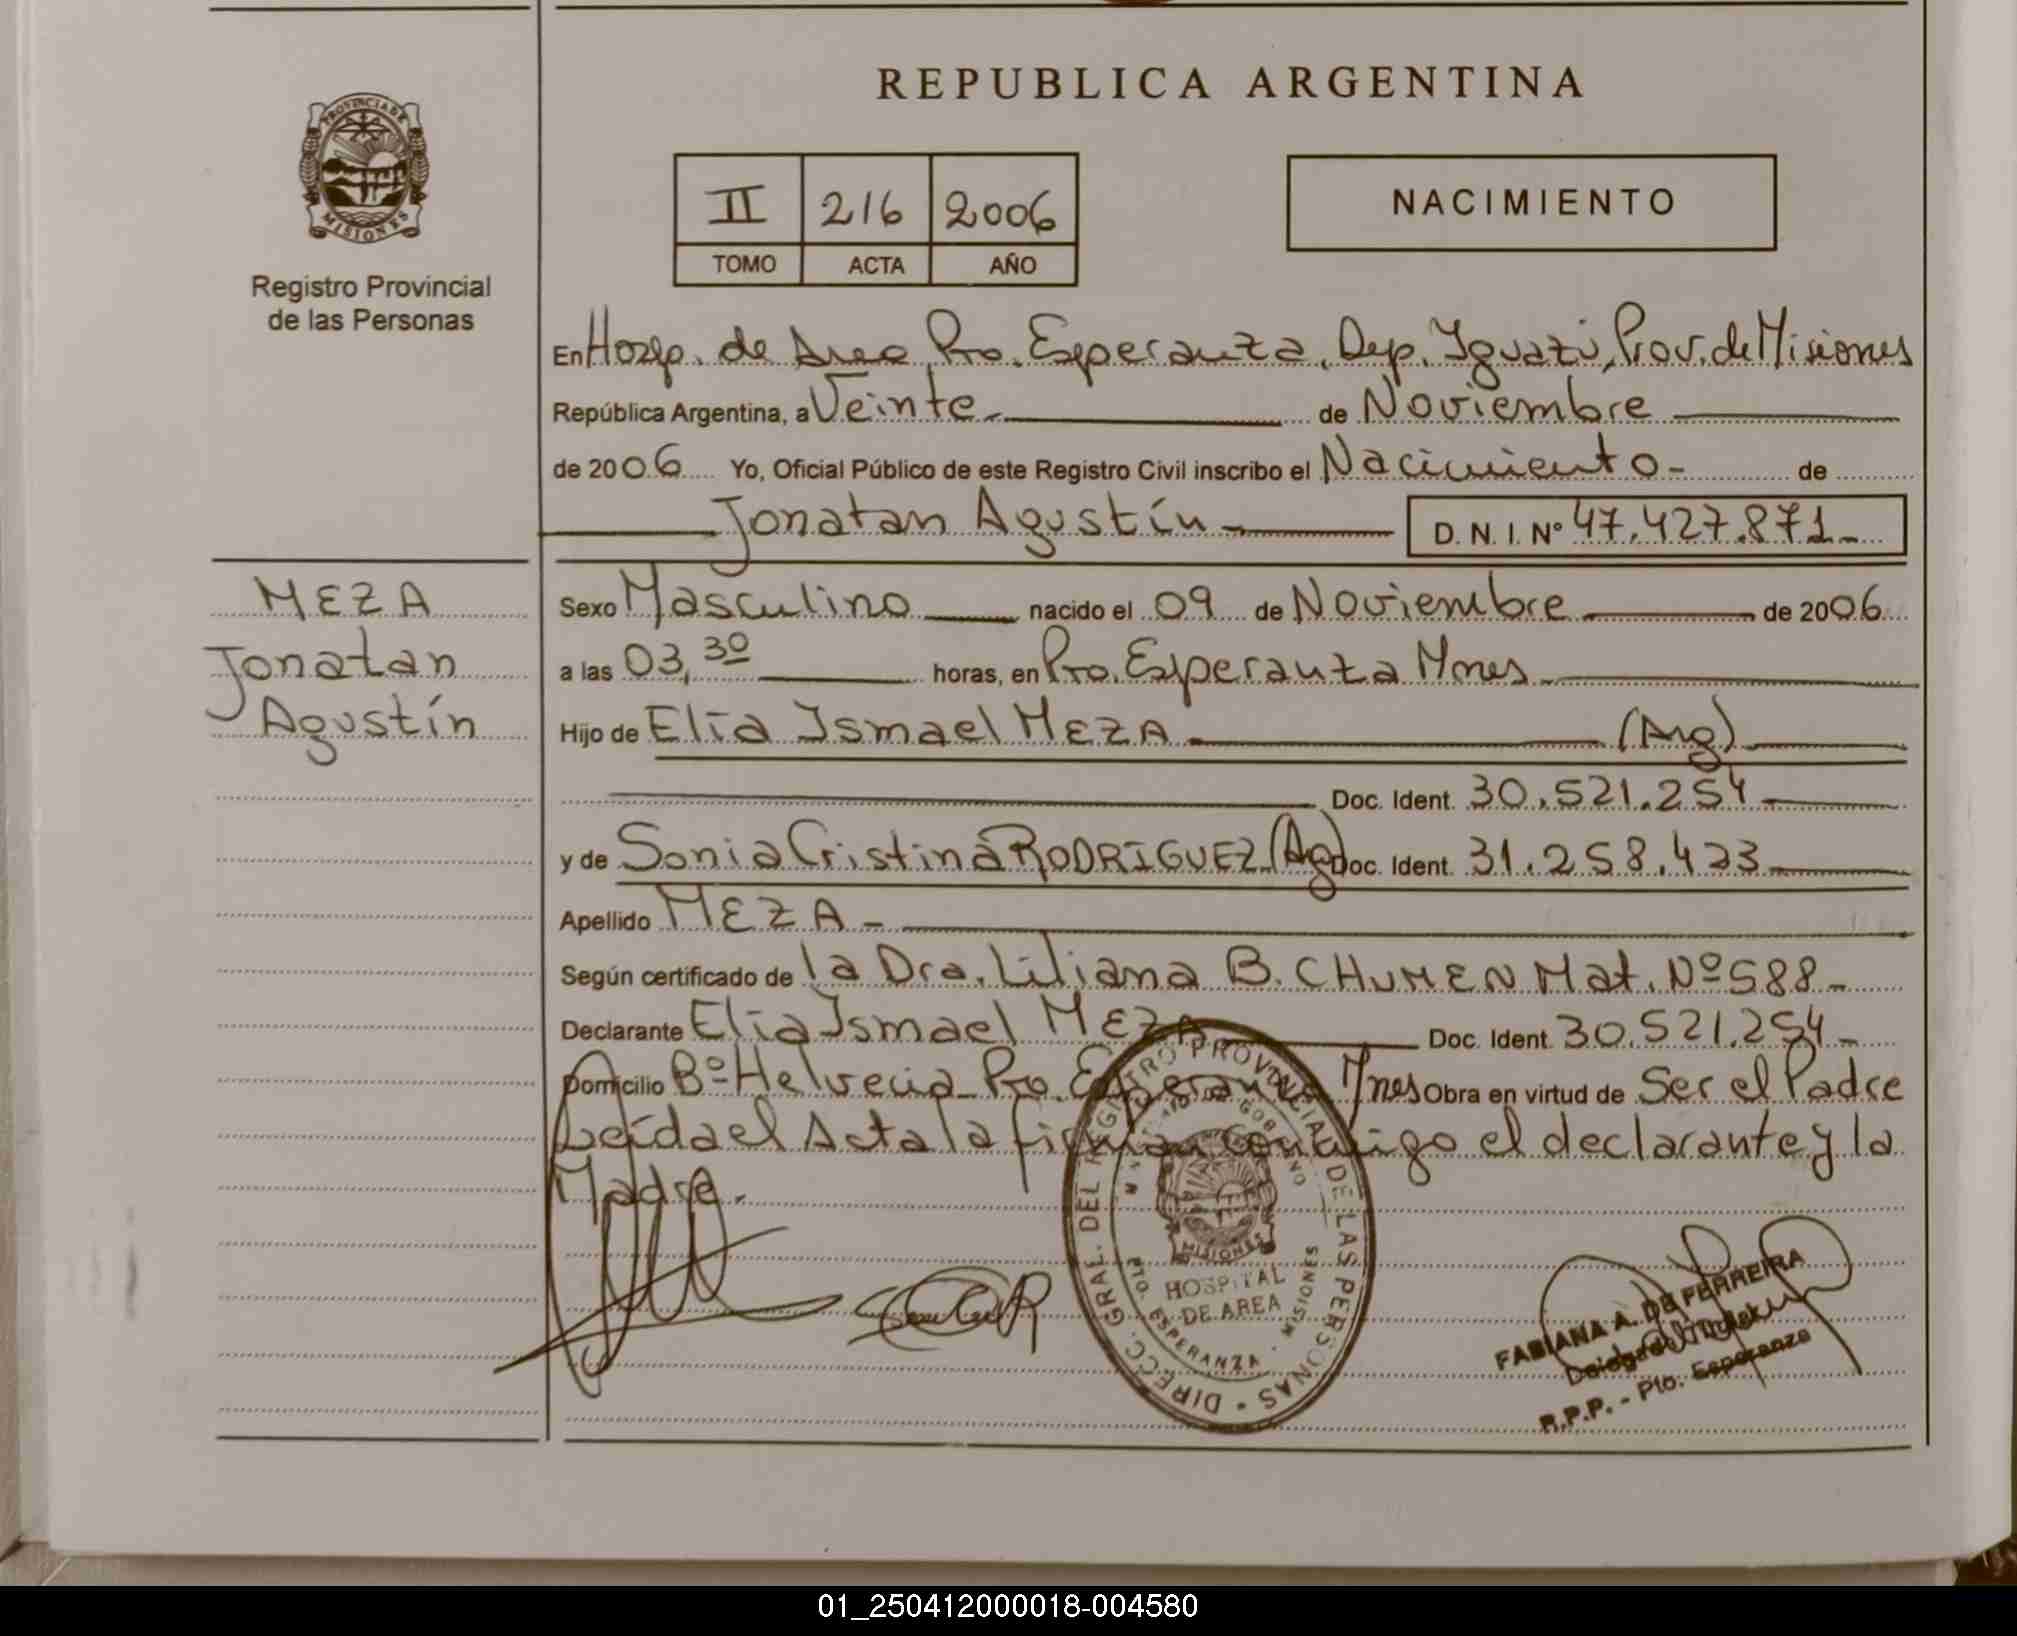 REPUBLICA ARGENTINA
PROVINCIA DE
MISIONES
Registro Provincial
de las Personas
II 216 2006
TOMO ACTA AÑO
NACIMIENTO
En Hosp. de Area Pto. Esperanza, Dep. Iguazú, Prov. de Misiones
República Argentina, a Veinte de Noviembre
de 2006 Yo, Oficial Público de este Registro Civil inscribo el Nacimiento - de
Jonatan Agustín D. N. I. Nº 47.427.871
MEZA
Jonatan
Agustín
Sexo Masculino nacido el 09 de Noviembre de 2006
a las 03,30 horas, en Pto. Esperanza Mnes
Hijo de Elia Ismael MEZA (Arg)
Doc. Ident. 30.521.254
y de Sonia Cristina RODRIGUEZ (Arg) Doc. Ident. 31.258.423
Apellido MEZA -
Según certificado de la Dra. Liliana B. CHUMEN Mat. Nº 588 -
Declarante Elia Ismael MEZA Doc. Ident. 30.521.254 -
Domicilio Bº Helvecia Pto. Esperanza Mnes Obra en virtud de Ser el Padre
Leída el Acta la firman conmigo el declarante y la
Madre.
DIRECC. GRAL. DEL REGISTRO PROVINCIAL DE LAS PERSONAS
MISIONES
HOSPITAL
DE AREA
PTO. ESPERANZA - MISIONES
FABIANA A. DE FERREIRA
Delegada Titular
R.P.P. - Pto. Esperanza
01_250412000018-004580